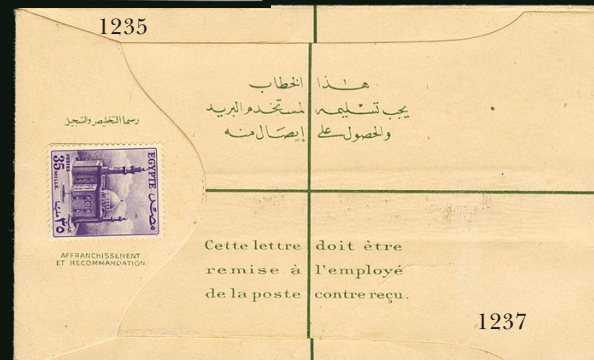 1235
هـذا الخطاب
يجب تسليمه لمستخدم البريد
والحصول على إيصال منه
رسما التخليص والتسجيل
EGYPTE مصر
POSTES 35 MILLS.
٣٥ مليما
AFFRANCHISSEMENT
ET RECOMMANDATION
Cette lettre doit être
remise à l'employé
de la poste contre reçu.
1237